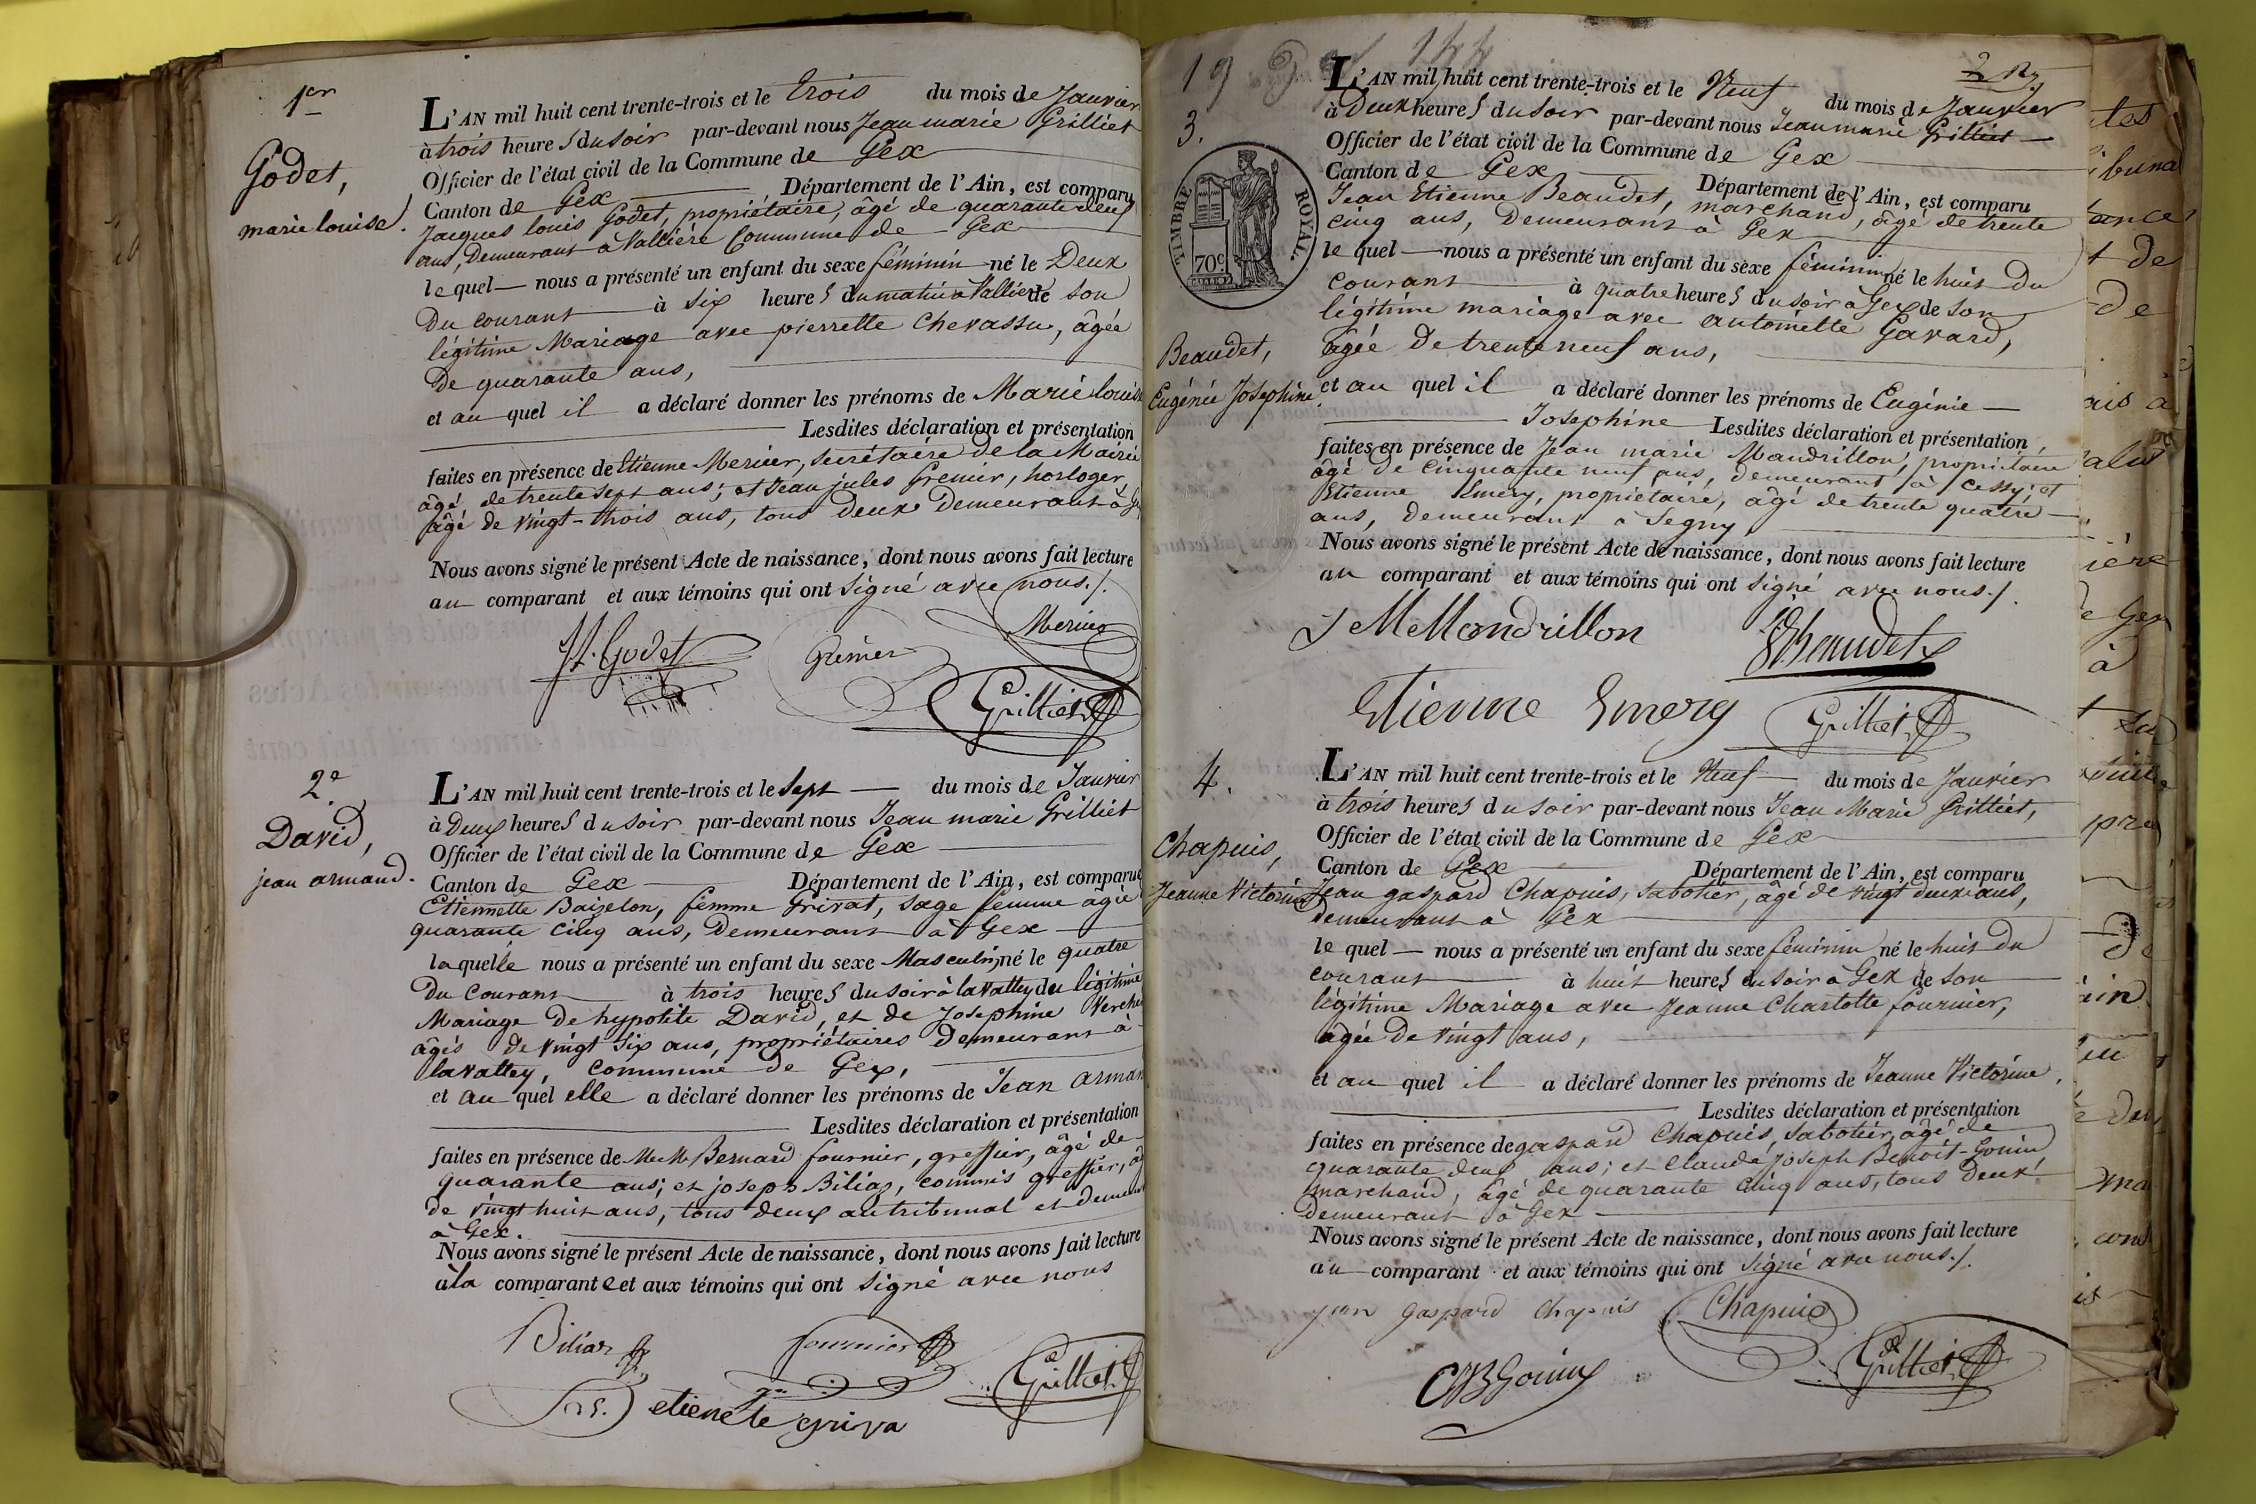 1er
Godet,
marie louise.
L'AN mil huit cent trente-trois et le trois du mois de Janvier
à trois heures du soir par-devant nous Jean marie Grilliet
Officier de l'état civil de la Commune de Gex
Canton de Gex Département de l'Ain, est comparu
Jacques louis Godet, propriétaire, âgé de quarante deux
ans, Demeurant à Vallière Commune de Gex
le quel nous a présenté un enfant du sexe féminin né le Deux
Du courant à six heures du matin à Vallière de son
légitime Mariage avec pierrette Chevassu, âgée
De quarante ans,
et au quel il a déclaré donner les prénoms de Marie louise
Lesdites déclaration et présentation
faites en présence de Etienne Mercier, secrétaire de la Mairie
âgé de trente sept ans; et Jean jules Grenier, horloger,
âgé de vingt-trois ans, tous Deux Demeurant à Gex
Nous avons signé le présent Acte de naissance, dont nous avons fait lecture
au comparant et aux témoins qui ont signé avec nous./.
Mercier
Jl. Godet
Grenier
Grilliet
2e
David,
jean armand.
L'AN mil huit cent trente-trois et le sept du mois de Janvier
à Deux heures du soir par-devant nous Jean marie Grilliet
Officier de l'état civil de la Commune de Gex
Canton de Gex Département de l'Ain, est comparue
Etiennette Baizelon, femme Grivat, sage femme âgée
quarante cinq ans, Demeurant à Gex
laquelle nous a présenté un enfant du sexe Masculin, né le quatre
Du Courant à trois heures du soir à lavattey du légitime
Mariage De hypolite David, et de Josephine
âgés de vingt six ans, propriétaires Demeurant à
lavattey, commune de Gex,
et au quel elle a déclaré donner les prénoms de Jean arman
Lesdites déclaration et présentation
faites en présence de Bernard fournier, greffier, âgé de
quarante ans; et joseph Biliaz, commis greffier, âgé
de vingt huit ans, tous deux au tribunal et demeurant
à Gex.
Nous avons signé le présent Acte de naissance, dont nous avons fait lecture
à la comparante et aux témoins qui ont signé avec nous
Biliaz
fournier
Grilliet
etienete griva
19
144
3.
TIMBRE ROYAL.
70c
Beaudet,
Eugénie Josephine.
L'AN mil huit cent trente-trois et le Neuf du mois de Janvier
à Deux heures du soir par-devant nous Jean marie Grilliet
Officier de l'état civil de la Commune de Gex
Canton de Gex Département de l'Ain, est comparu
Jean Etienne Beaudet, marchand, âgé de trente
cinq ans, Demeurant à Gex
le quel nous a présenté un enfant du sexe féminin né le huit Du
courant à quatre heures du soir à Gex de son
légitime mariage avec antoinette Gavard,
âgée De trente neuf ans,
et au quel il a déclaré donner les prénoms de Eugénie
Josephine Lesdites déclaration et présentation
faites en présence de Jean marie Mandrillon, propriétaire
âgé De cinquante neuf ans, demeurant à Cessy; et
Etienne Emery, propriétaire, âgé de trente quatre
ans, demeurant à Segny,
Nous avons signé le présent Acte de naissance, dont nous avons fait lecture
au comparant et aux témoins qui ont signé avec nous./.
J M Mandrillon
Beaudet
Etienne Emery
Grilliet
4.
Chapuis,
Jeanne Victorine
L'AN mil huit cent trente-trois et le Neuf du mois de Janvier
à trois heures du soir par-devant nous Jean Marie Grilliet,
Officier de l'état civil de la Commune de Gex
Canton de Gex Département de l'Ain, est comparu
Jean gaspard Chapuis, sabotier, âgé de vingt deux ans,
demeurant à Gex
le quel nous a présenté un enfant du sexe féminin né le huit du
courant à huit heures du soir à Gex de son
légitime Mariage avec Jeanne Charlotte fournier,
âgée De vingt ans,
et au quel il a déclaré donner les prénoms de Jeanne Victorine,
Lesdites déclaration et présentation
faites en présence de gaspard Chapuis, sabotier, âgé de
quarante deux ans; et Claude Joseph Benoit-Gonin
marchand, âgé de quarante cinq ans, tous deux
demeurant à Gex
Nous avons signé le présent Acte de naissance, dont nous avons fait lecture
au comparant et aux témoins qui ont signé avec nous./.
jean gaspard chapuis
Chapuis
Grilliet